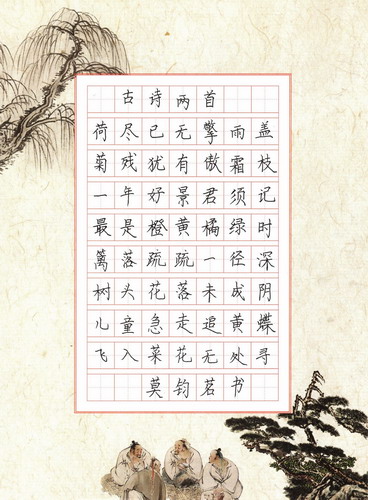 古诗两首
荷尽已无擎雨盖
菊残犹有傲霜枝
一年好景君须记
最是橙黄橘绿时
篱落疏疏一径深
树头花落未成阴
儿童急走追黄蝶
飞入菜花无处寻
莫钧茗书